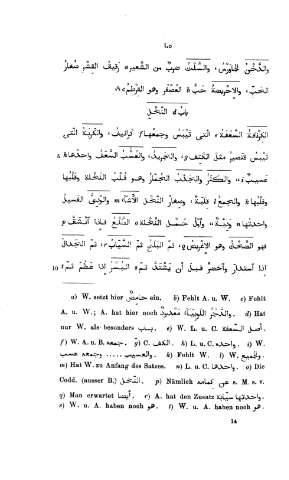 ١٠٥
والدُّخْنُ الجَاوَرْسُ، والسُّلْتُ ضربٌ من الشعير رقيقُ القِشْرِ صغارُ
الحَبِّ، والإحْرِيضُ حَبّ العُصْفُرِ وهو القُرْطُم
باب النَّخْلِ
الكِرْنَافَةُ السَّعَفَةُ التى تَيْبَسُ وجمعُها كَرَانِيفُ، والكَرَبَةُ التى
تَيْبَسُ فتصيرُ مثل الكَتِفِ، والجَرِيدُ، والعُسُبُ السَّعَفُ واحدها
عَسِيبٌ، والكَثَرُ والجَذَبُ الجُمَّارُ وهو قُلْبُ النخلةِ وقَلْبُها
وقِلْبُها والجميعُ قِلَبَةٌ، وصغارُ النخلِ الأَشَاءُ والوَدِىُّ الفَسِيلُ
واحدتها وَدِيَّةٌ، وأوّلُ حَمْلِ النخلةِ الطَّلْعُ فإذا انْشَقَّ
فهو الضَّحْكُ وهو الإغْرِيضُ، ثم البَلَحُ ثم السَّيَابُ، ثم الجَدَالُ
اذا استدارَ واخضرّ قبل أن يَشْتَدَّ ثم البُسْرُ اذا عَظُمَ ثم 10
a) W. setzt hier ein. b) Fehlt A. u. W. c) Fehlt
A. u. W.; A. hat hier noch d) Hat
nur W. als besonders باب. e) W. L. u. C. أصل السعفة
f) W. A. u. B. جمعه. g) L. u. C. الكف. h) L. u. C. واحده. i) W.
والجميع. k) Fehlt W. l) W. والعسيب ..... وجمعه عسب.
m) Hat W. zu Anfang des Satzes. n) L. u. C. واحدها. o) Die
Codd. (ausser B.) النخل. p) Nämlich عن كمامه s. M. s. v.
q) Man erwartet أيضا. r) A. hat den Zusatz واحدتها سيابة.
s) W. u. A. haben noch هو. t) W. u. A. haben noch هو.
14